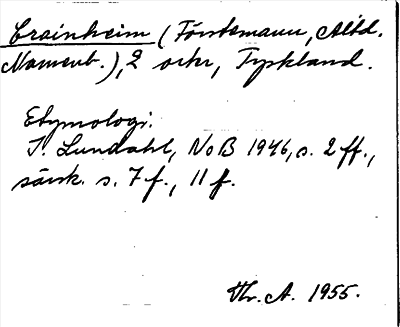 Crainheim (Förstemann, Altd.
Namenb.), 2 orter, Tyskland.
Etymologi.
I. Lundahl, NoB 1946, s. 2 ff.,
särsk. s. 7 f., 11 f.
Hr. A. 1955.